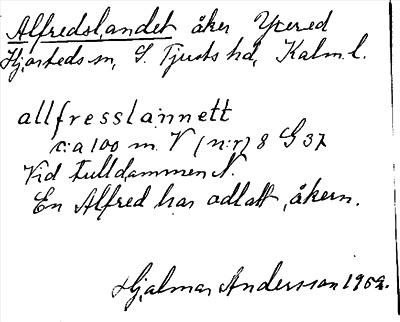 Alfredslandet åker Ytered
Hjorteds sn, S. Tjusts hd, Kalm. l.
allfresslannett
c:a 100 m V (n:r) 8 G 37
Vid Fulldammen N.
En Alfred har odlatt åkern.
Hjalmar Andersson 1952.